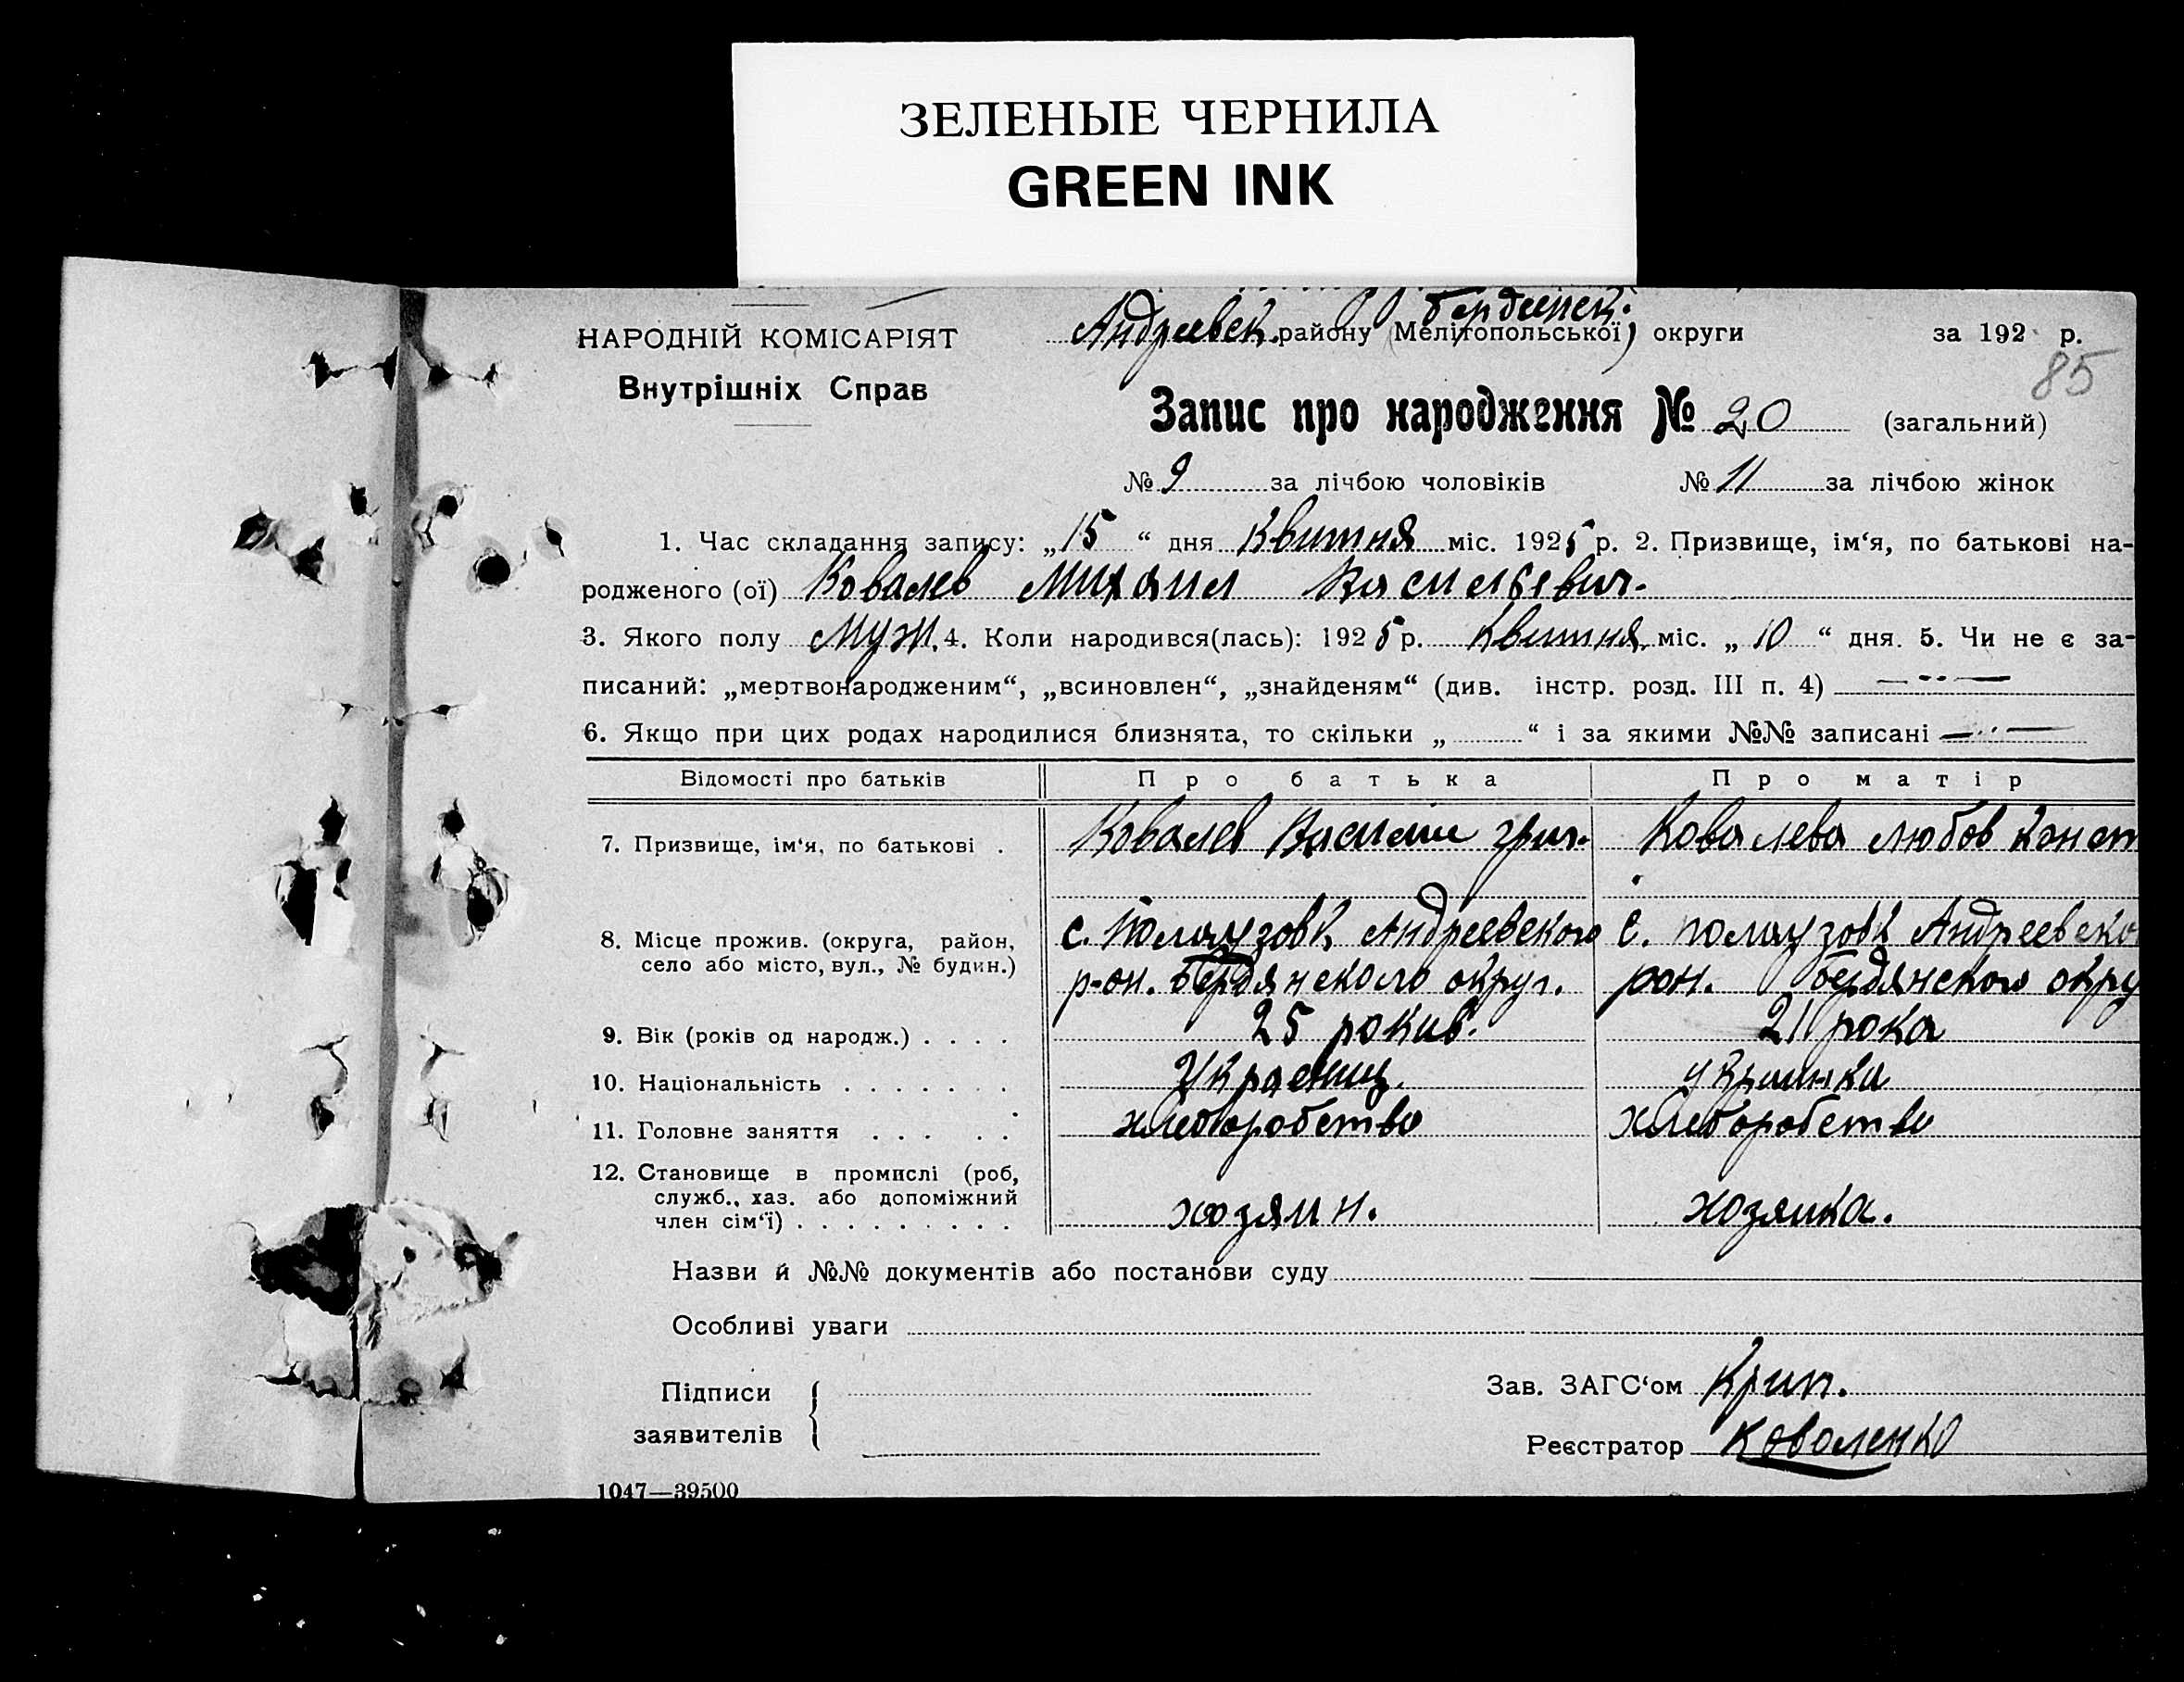 ЗЕЛЕНЫЕ ЧЕРНИЛА
GREEN INK
НАРОДНІЙ КОМІСАРІЯТ
Внутрішніх Справ
бердянск.
Андреевск. району (Мелітопольської) округи за 192 р.
85
Запис про народження № 20 (загальний)
№ 9 за лічбою чоловіків № 11 за лічбою жінок
1. Час складання запису: „15“ дня Квитня міс. 1925 р. 2. Призвище, ім‘я, по батькові на-
родженого (ої) Ковалев Михаил Васильевич.
3. Якого полу Муж. 4. Коли народився(лась): 1925 р. Квитня міс. „10“ дня. 5. Чи не є за-
писаний: „мертвонародженим“, „всиновлен“, „знайденям“ (див. інстр. розд. III п. 4)
6. Якщо при цих родах народилися близнята, то скільки „ “ і за якими №№ записані
Відомості про батьків Про батька Про матір
7. Призвище, ім‘я, по батькові . Ковалев Василий григ. Ковалева любов Конст
8. Місце прожив. (округа, район, с. Андреевского с. Андреевско
село або місто, вул., № будин.) р-он. бердянского округ. рон. бердянского окру
9. Вік (років од народж.) . . . . 25 рокив. 21 рока
10. Національність . . . . . . . Украенец. украинка
11. Головне заняття . . . . . хлеборобство хлеборобство
12. Становище в промислі (роб,
служб., хаз. або допоміжний
член сім‘ї) . . . . . . . . . хозяин. хозяйка.
Назви й №№ документів або постанови суду
Особливі уваги
Підписи Зав. ЗАГС‘ом
заявителів Реєстратор Коваленко
1047—39500